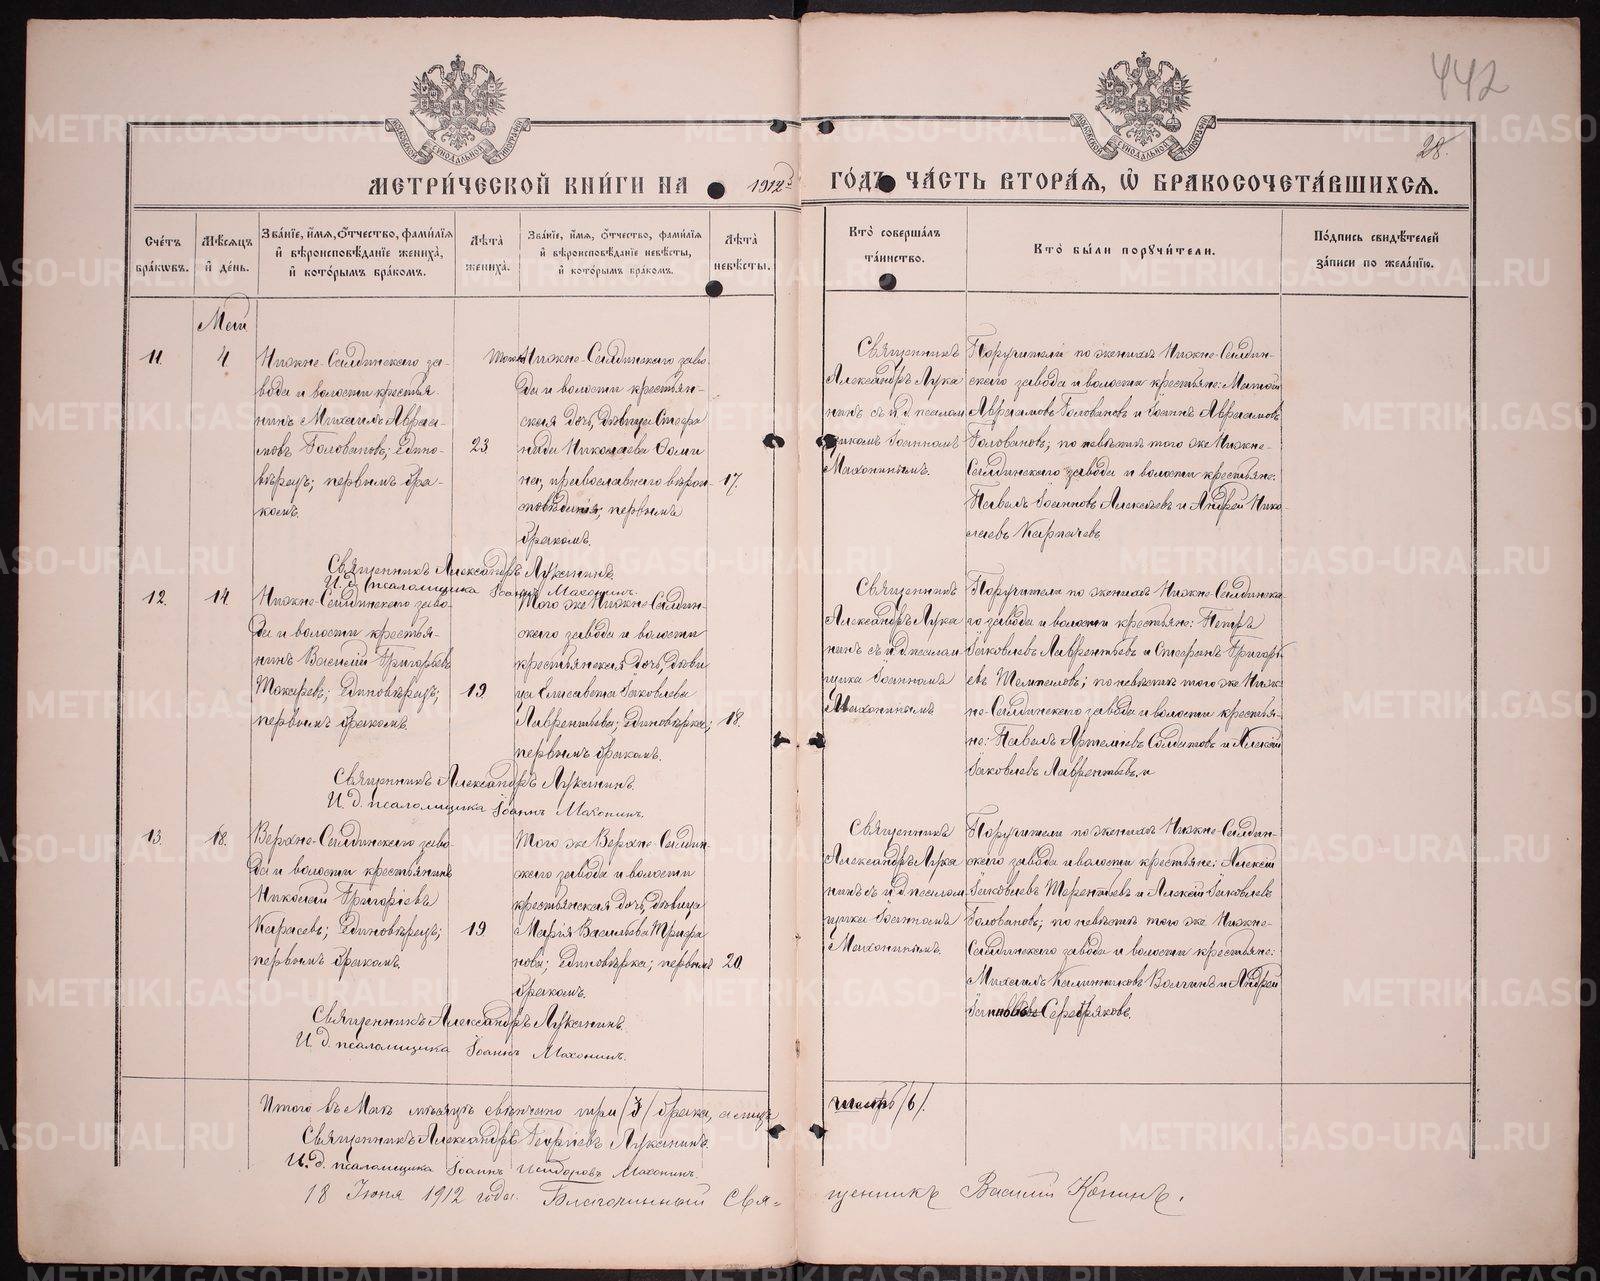 442
28.
МЕТРИ́ЧЕСКОЙ КНИ́ГИ НА 1912 ГО́ДЪ ЧА́СТЬ ВТОРА́Я, Ѡ҆ БРАКОСОЧЕТА́ВШИХСЯ.
Сче́тъ бра́ковъ.
Мѣ́сяцъ и҆ де́нь.
Зва́нїе, и҆́мя, ѻ҆́тчество, фами́лїя
и҆ вѣроисповѣ́данїе жениха̀,
и҆ кото́рымъ бра́комъ.
Лѣта̀ жениха̀.
Зва́нїе, и҆́мя, ѻ҆́тчество, фами́лїя
и҆ вѣроисповѣ́данїе невѣ́сты,
и҆ кото́рымъ бра́комъ.
Лѣта̀ невѣ́сты.
Кто̀ соверша́лъ
та́инство.
Кто̀ бы́ли поручи́тели.
По́дпись свидѣ́телей
за́писи по жела́нїю.
Май
11.
4.
Нижне-Салдинскаго за-
вода и волости крестья
нинъ Михаилъ Авраа-
мовъ Головановъ; едино-
вѣрецъ; первымъ бра-
комъ.
23.
Нижне-Салдинскаго заво
да и волости крестьян-
ская дочь, дѣвица Стефа
нида Николаева
православнаго вѣрои-
сповѣданія; первымъ
бракомъ.
17.
Священникъ
Александръ Лука
нинъ съ и.д. псалом
щикомъ Іоанномъ
Махонинымъ.
Поручители по женихѣ Нижне-Салдин-
скаго завода и волости крестьяне: Матѳій
Авраамовъ Головановъ и Іоаннъ Авраамовъ
Головановъ; по невѣстѣ того же Нижне-
Салдинскаго завода и волости крестьяне:
Павелъ Іоанновъ Алексѣевъ и Андрей Нико
лаевъ Карпачевъ.
Священникъ Александръ Луканинъ.
И. д. псаломщика Іоаннъ Махонинъ.
12.
14.
Нижне-Салдинскаго заво-
да и волости крестья-
нинъ Василій Григорьевъ
Токаревъ; единовѣрецъ;
первымъ бракомъ.
19.
Того же Нижне-Салдин-
скаго завода и волости
крестьянская дочь, дѣви
ца Елисавета Іаковлева
Лаврентьева; единовѣрка;
первымъ бракомъ.
18.
Священникъ
Александръ Лука
нинъ съ и.д. псалом
щика Іоанномъ
Махонинымъ
Поручители по женихѣ Нижне-Салдинска
го завода и волости крестьяне: Петръ
Іаковлевъ Лаврентьевъ и Стефанъ Григорь
евъ по невѣстѣ того же Ниж-
не-Салдинскаго завода и волости крестья-
не: Павелъ Артемиевъ Солдатовъ и Алексій
Іаковлевъ Лаврентьевъ.
Священникъ Александръ Луканинъ.
И. д. псаломщика Іоаннъ Махонинъ.
13.
18.
Верхне-Салдинскаго заво
да и волости крестьянинъ
Николай Григоріевъ
Карасевъ; единовѣрецъ;
первымъ бракомъ.
19.
Того же Верхне-Салдин-
скаго завода и волости
крестьянская дочь, дѣвица
Марія Васильева Трифа
нова; единовѣрка; первымъ
бракомъ.
20.
Священникъ
Александръ Лука
нинъ съ и.д. псалом
щика Іоанномъ
Махонинымъ.
Поручители по женихѣ Нижне-Салдин-
скаго завода и волости крестьяне: Алексій
Іаковлевъ Терентьевъ и Алексій Іаковлевъ
Головановъ; по невѣстѣ того же Нижне-
Салдинскаго завода и волости крестьяне:
Михаилъ Калинниковъ Волгинъ и Андрей
Серебряковъ.
Священникъ Александръ Луканинъ.
И. д. псаломщика Іоаннъ Махонинъ.
Итого въ Маѣ мѣсяцѣ свѣнчано три /3/ брака, а лицъ шесть /6/.
Священникъ Александръ Георгіевъ Луканинъ.
И. д. псаломщика Іоаннъ Исидоровъ Махонинъ.
18 Іюня 1912 года. Благочинный Свя-
щенникъ Василій Конинъ.
METRIKI.GASO-URAL.RU